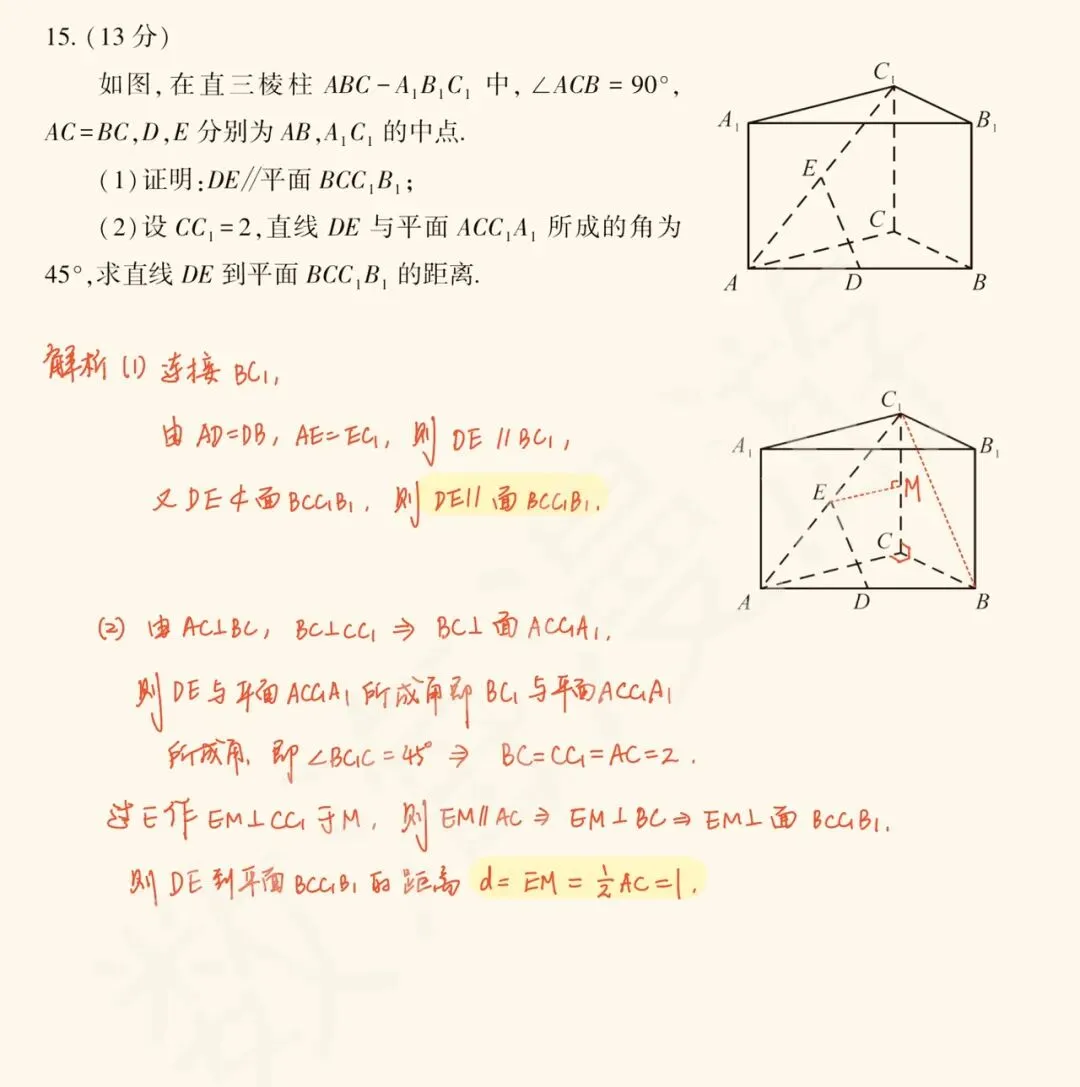 15. (13分)
如图,在直三棱柱 ABC-A₁B₁C₁ 中,∠ACB=90°,
AC=BC,D,E 分别为 AB,A₁C₁ 的中点.
(1)证明:DE∥平面 BCC₁B₁;
(2)设 CC₁=2,直线 DE 与平面 ACC₁A₁ 所成的角为
45°,求直线 DE 到平面 BCC₁B₁ 的距离.
C₁
A₁
B₁
E
C
A
D
B
解析 (1) 连接 BC₁,
由 AD=DB, AE=EC₁, 则 DE∥BC₁,
又 DE⊄面 BCC₁B₁, 则 DE∥面 BCC₁B₁.
C₁
A₁
B₁
E
M
C
A
D
B
(2) 由 AC⊥BC, BC⊥CC₁ ⇒ BC⊥面 ACC₁A₁.
则 DE 与平面 ACC₁A₁ 所成角即 BC₁ 与平面 ACC₁A₁
所成角, 即 ∠BC₁C=45° ⇒ BC=CC₁=AC=2.
过 E 作 EM⊥CC₁ 于 M, 则 EM∥AC ⇒ EM⊥BC ⇒ EM⊥面 BCC₁B₁.
则 DE 到平面 BCC₁B₁ 的距离 d=EM=½AC=1.